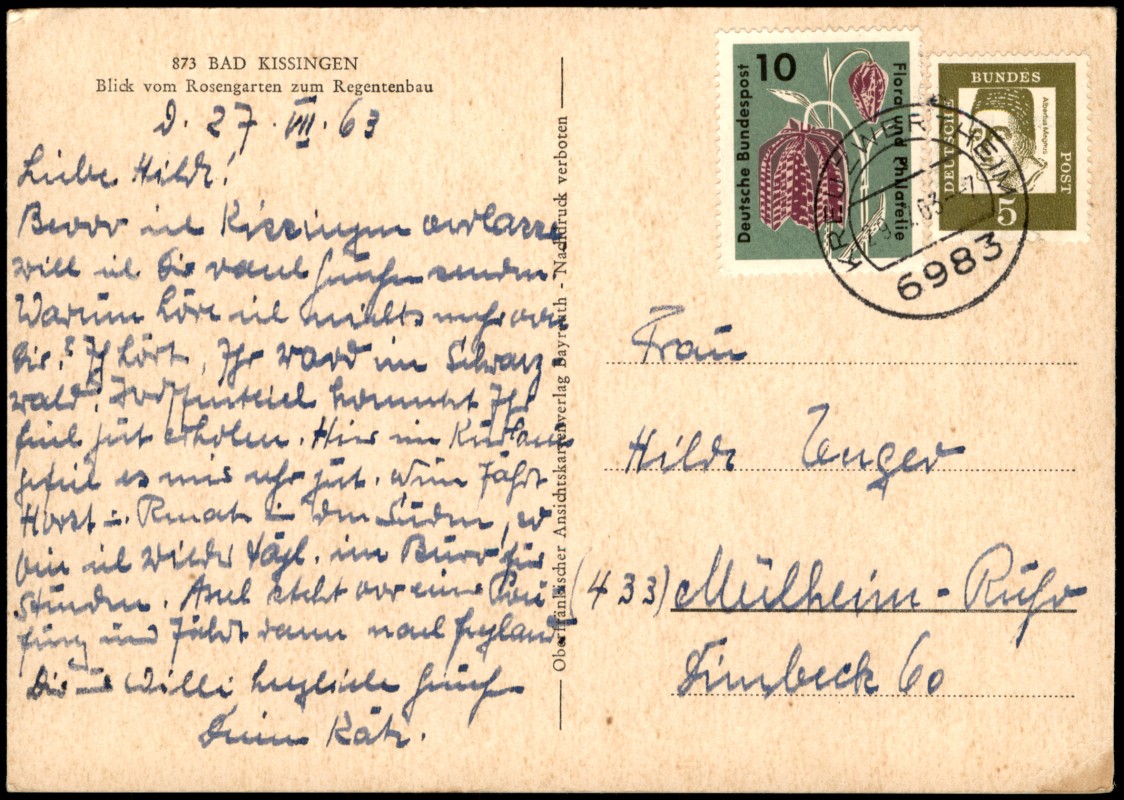 873 BAD KISSINGEN
Blick vom Rosengarten zum Regentenbau
D. 27. VII. 63
Liebe Hilde!
Bevor ich Kissingen verlasse
will ich Dir rasch Grüße senden
Warum höre ich nichts mehr von
Dir? Ich hört, Ihr ward im Schwarz-
wald. Hoffentlich konntet Ihr
Euch gut erholen. Hier im Kurhaus
gefiel es mir sehr gut. Nun fährt
Horst u. Renate in den Süden, so
bin ich wieder tägl. im Büro für
Stunden. Axel steht vor einer Prü-
fung und fährt dann nach England
Dir u Willi herzliche Grüße
Deine Käte.
Oberfränkischer Ansichtskartenverlag Bayreuth - Nachdruck verboten
10
Deutsche Bundespost
Flora und Philatelie
DEUTSCHE
BUNDES
POST
Albertus Magnus
5
KREUZWERTHEIM
6983
Frau
Hilde Unger
(433) Mülheim-Ruhr
Dimbeck 60